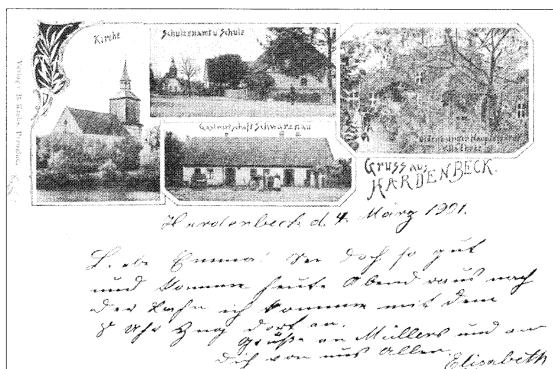 Kirche
Schulzenamt u Schule
Gastwirtschaft Schwarzenau
Gruss aus
HARDENBECK.
Hardenbeck d. 4. März 1901.
L. Emma! Sei doch so gut
und komme heute Abend raus nach
der Bahn ich komme mit dem
8 Uhr Zug dort an.
Grüße an Müllers und an
Dich von uns Allen.
Elisabeth